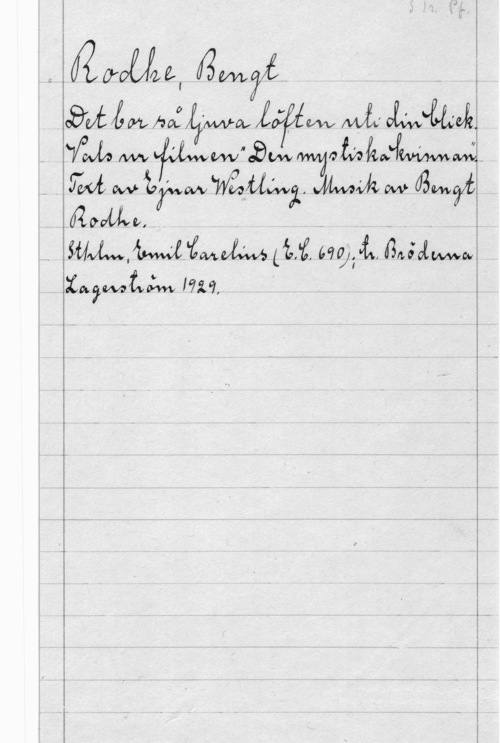 S 1r. Pf.
Rodhe, Bengt
Det bor så ljuva löften uti din blick.
Vals ur filmen "Den mystiska kvinnan".
Text av Ejnar Westling. Musik av Bengt
Rodhe.
Sthlm, Emil Carelius (E.C. 690); tr. Bröderna
Lagerström 1929.